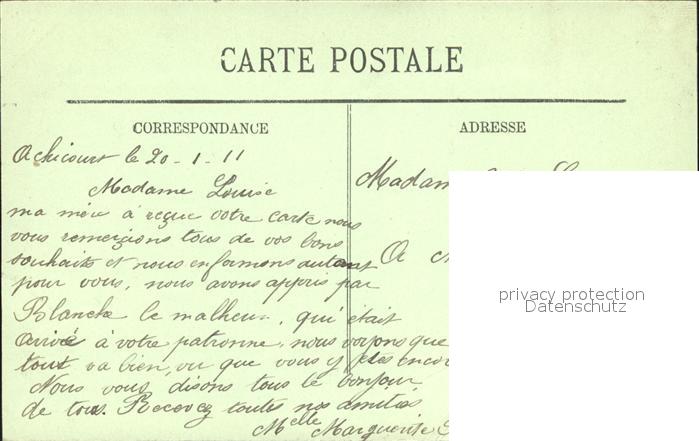 CARTE POSTALE
CORRESPONDANCE
ADRESSE
Achicourt le 20-1-11
Madame Louise
ma mère à reçue votre carte nous
vous remerçions tous de vos bons
souhaits et nous enformons autant
pour vous, nous avons appris par
Blanche le malheur, qui était
arrivé à votre patronne, nous voyons que
tout va bien, vu que vous y êtes encor
Nous vous disons tous le bonjour
de tous. Recevez toutes nos amitiés
Melle Marguerite
Madam
A
privacy protection
Datenschutz